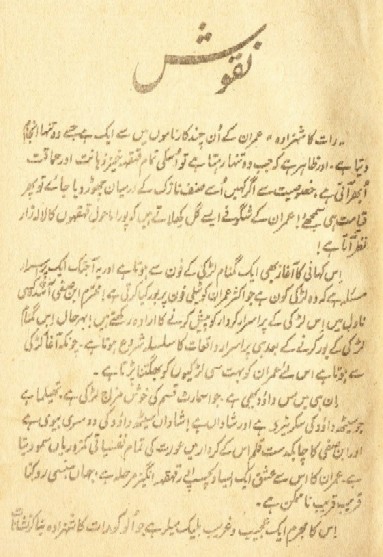 نقوش
"رات کا شہزادہ" عمران کے اُن چند کارناموں میں سے ایک ہے جسے وہ تنہا انجام
دیتا ہے۔ اور ظاہر ہے کہ جب وہ تنہا رہتا ہے تو اُسکی تمام قہقہہ خیز ذہانت اور حماقت
اُبھر آتی ہے۔ خصوصیت سے اگر کہیں اُسے صنف نازک کے درمیان چھوڑ دیا جائے تو پھر
قیامت ہی سمجھئے! عمران کے شگوفے ایسے گل کھلاتے ہیں کہ پورا ماحول قہقہوں کا لالہ زار
نظر آتا ہے!
اِس کہانی کا آغاز بھی ایک گمنام لڑکی کے فون سے ہوتا ہے اور یہ آجتک ایک پراسرار
مسئلہ ہے کہ وہ لڑکی کون ہے جو اکثر عمران کو ٹیلی فون پر بور کیا کرتی ہے! محترم ابن صفی آئندہ کسی
ناول میں اِس لڑکی کے پراسرار کردار کو پیش کرنے کا ارادہ رکھتے ہیں! بہرحال اِس گمنام
لڑکی کے بور کرنے کے بعد ہی پراسرار واقعات کا سلسلہ شروع ہوتا ہے۔ چونکہ آغاز لڑکی
سے ہوتا ہے اس لئے عمران کو بہت سی لڑکیوں کو بھگتنا پڑتا ہے۔
اِن ہی میں مس داؤد بھی ہے۔ جو اسمارٹ قسم کی خوش مزاج لڑکی ہے۔ تھیلما ہے
جو سیٹھ داؤد کی سکریٹری ہے اور شاداں ہے! شاداں سیٹھ داؤد کی دوسری بیوی ہے
اور ابن صفی کا چابکدست قلم اس کے کردار میں عورت کی تمام نفسیاتی کمزوریاں سمو دیتا
ہے۔ عمران کا اس سے عشق ایک ایسا دلچسپ اور قہقہہ انگیز مرحلہ ہے! جہاں ہنسی روکنا
قریب قریب ناممکن ہے۔
اِس کا مجرم ایک عجیب و غریب بلیک میلر ہے جو اُلو کو رات کا شہزادہ بنا کر